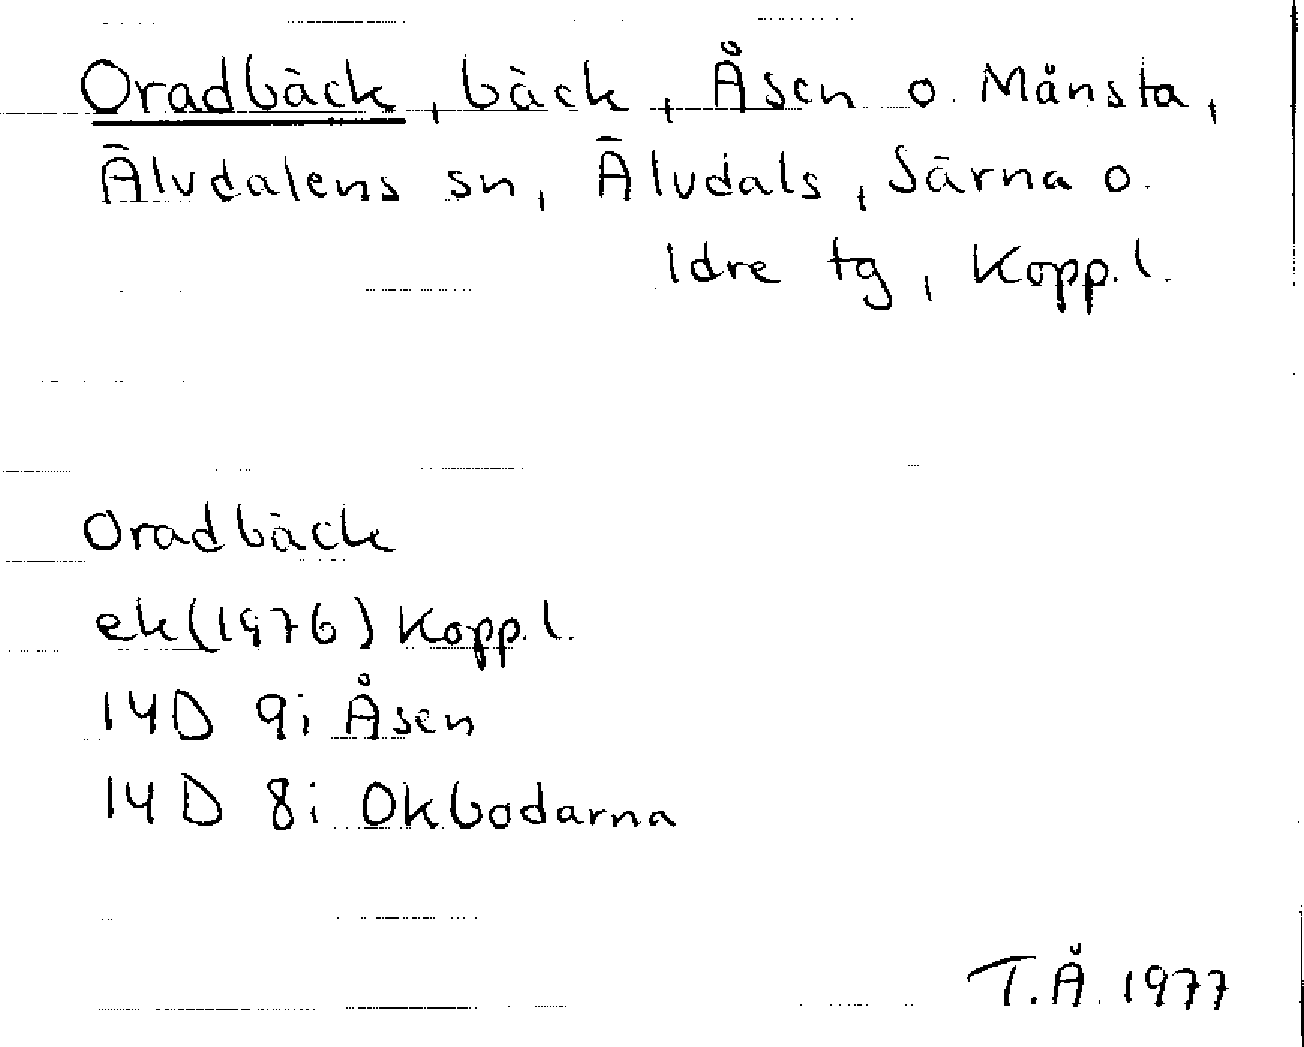 Oradbäck, bäck, Åsen o. Månsta,
Älvdalens sn, Älvdals, Särna o.
Idre tg, Kopp.l.
Oradbäck
ek(1976) Kopp.l.
14D 9i Åsen
14D 8i Okbodarna
T.Å. 1977